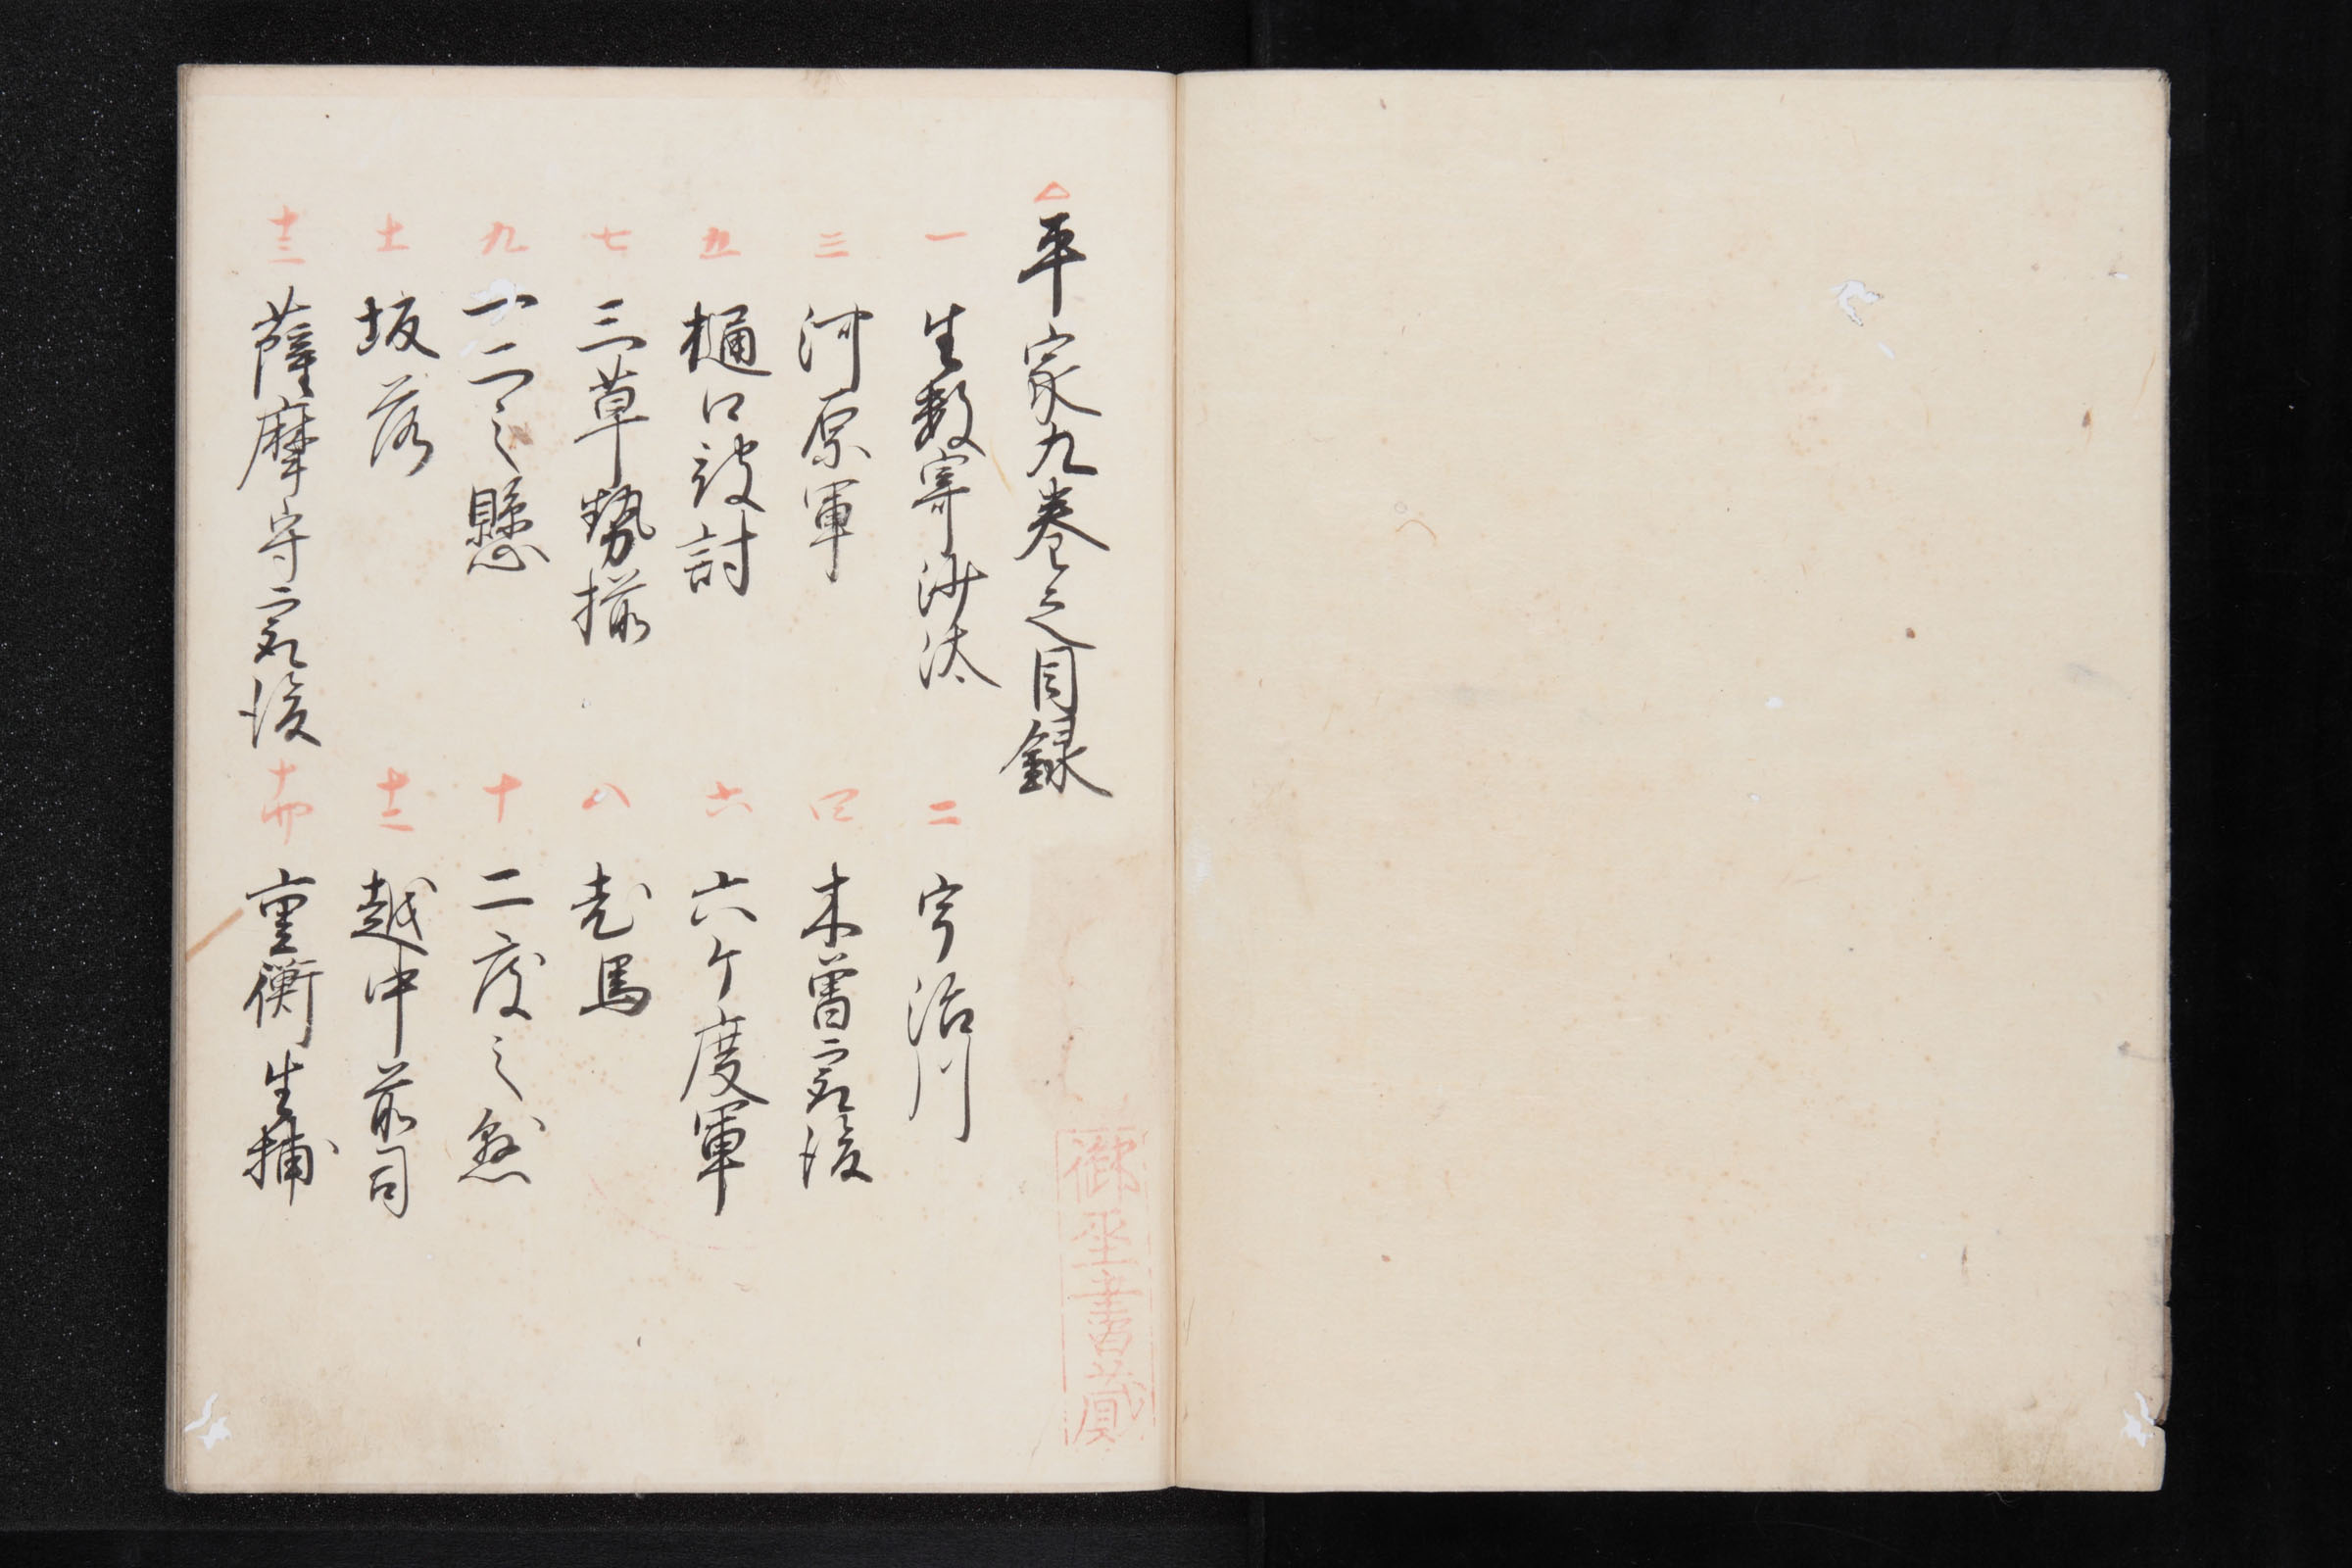 △平家九巻之目録
一 生数寄沙汰 二 宇治川
三 河原軍 四 木曽最後
五 樋口被討 六 六ケ度軍
七 三草勢揃 八 老馬
九 一二之懸 十 二度之懸
十一 坂落 十二 越中前司
十三 薩摩守最後 十四 重衡生捕
御巫書蔵